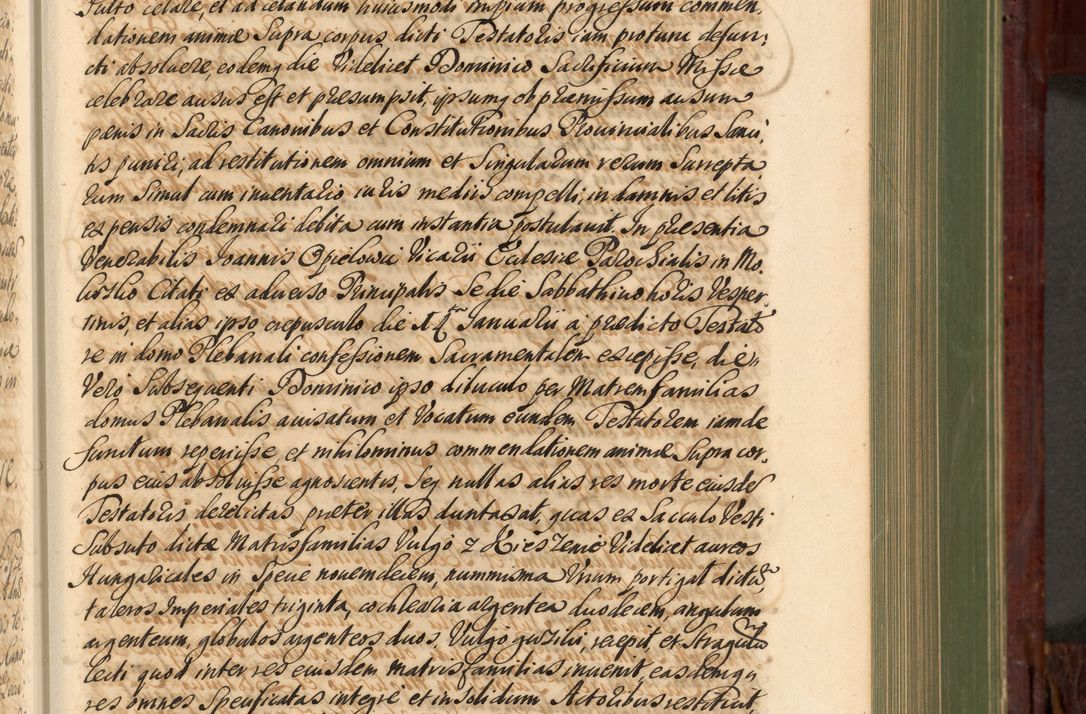 furto celare, et ad celandum huiusmodi impium progressum commen,
dationem animæ Supra corpus dicti Testatoris iam protunc defun,
cti absoluere, eodemq die Videlicet Dominico Sacrificium Missæ
celebrare ausus est et præsumpsit, ipsumq ob præmissum ausum
pænis in Sacris Canonibus et Constitutionibus Prouincialibus Sanci,
tis puniri, ad restitutionem omnium et Singularum rerum Surrepta
rum Simul cum inuentario iuris mediis compelli, in damnis et litis
expensis condemnari debita cum instantia postulauit. In præsentia
Venerabilis Joannis Opielowic Vicarii Ecclesiæ Parochialis in Mo,
Citati ex aduerso Principalis Se die Sabbathino horis Vesper
tinis, et alias ipso crepusculo die Januarii a prædicto Testato
re in domo Plebanali confessionem Sacramentalem excepisse, die
Vero Subsequenti Dominico ipso diluculo per Matrem familias
domus Plebanalis auisatum et Vocatum eundem Testatorem iam de
functum reperiisse et nihilominus commendationem animæ Supra cor,
pus eius absoluisse agnoscentis, Seq nullas alias res morte eiusdem
Testatoris derelictas præter illas duntaxat, quas ex Sacculo Vesti
Subsuto dictæ Matrisfamilias Vulgo z Kieszenie Videlicet aureos
Hungaricales in Specie nouemdecim, nummisma Vnum portigal dictum
taleros Imperiales triginta, cochlearia argentea duodecim, angulum
argenteum, globulos argenteos duos, Vulgo guziki, recepit, et Stragulum
lecti quod inter res eiusdem matrisfamilias inuenit, easdemq
res omnes Specificatas integre et in Solidum Actoribus restituit,